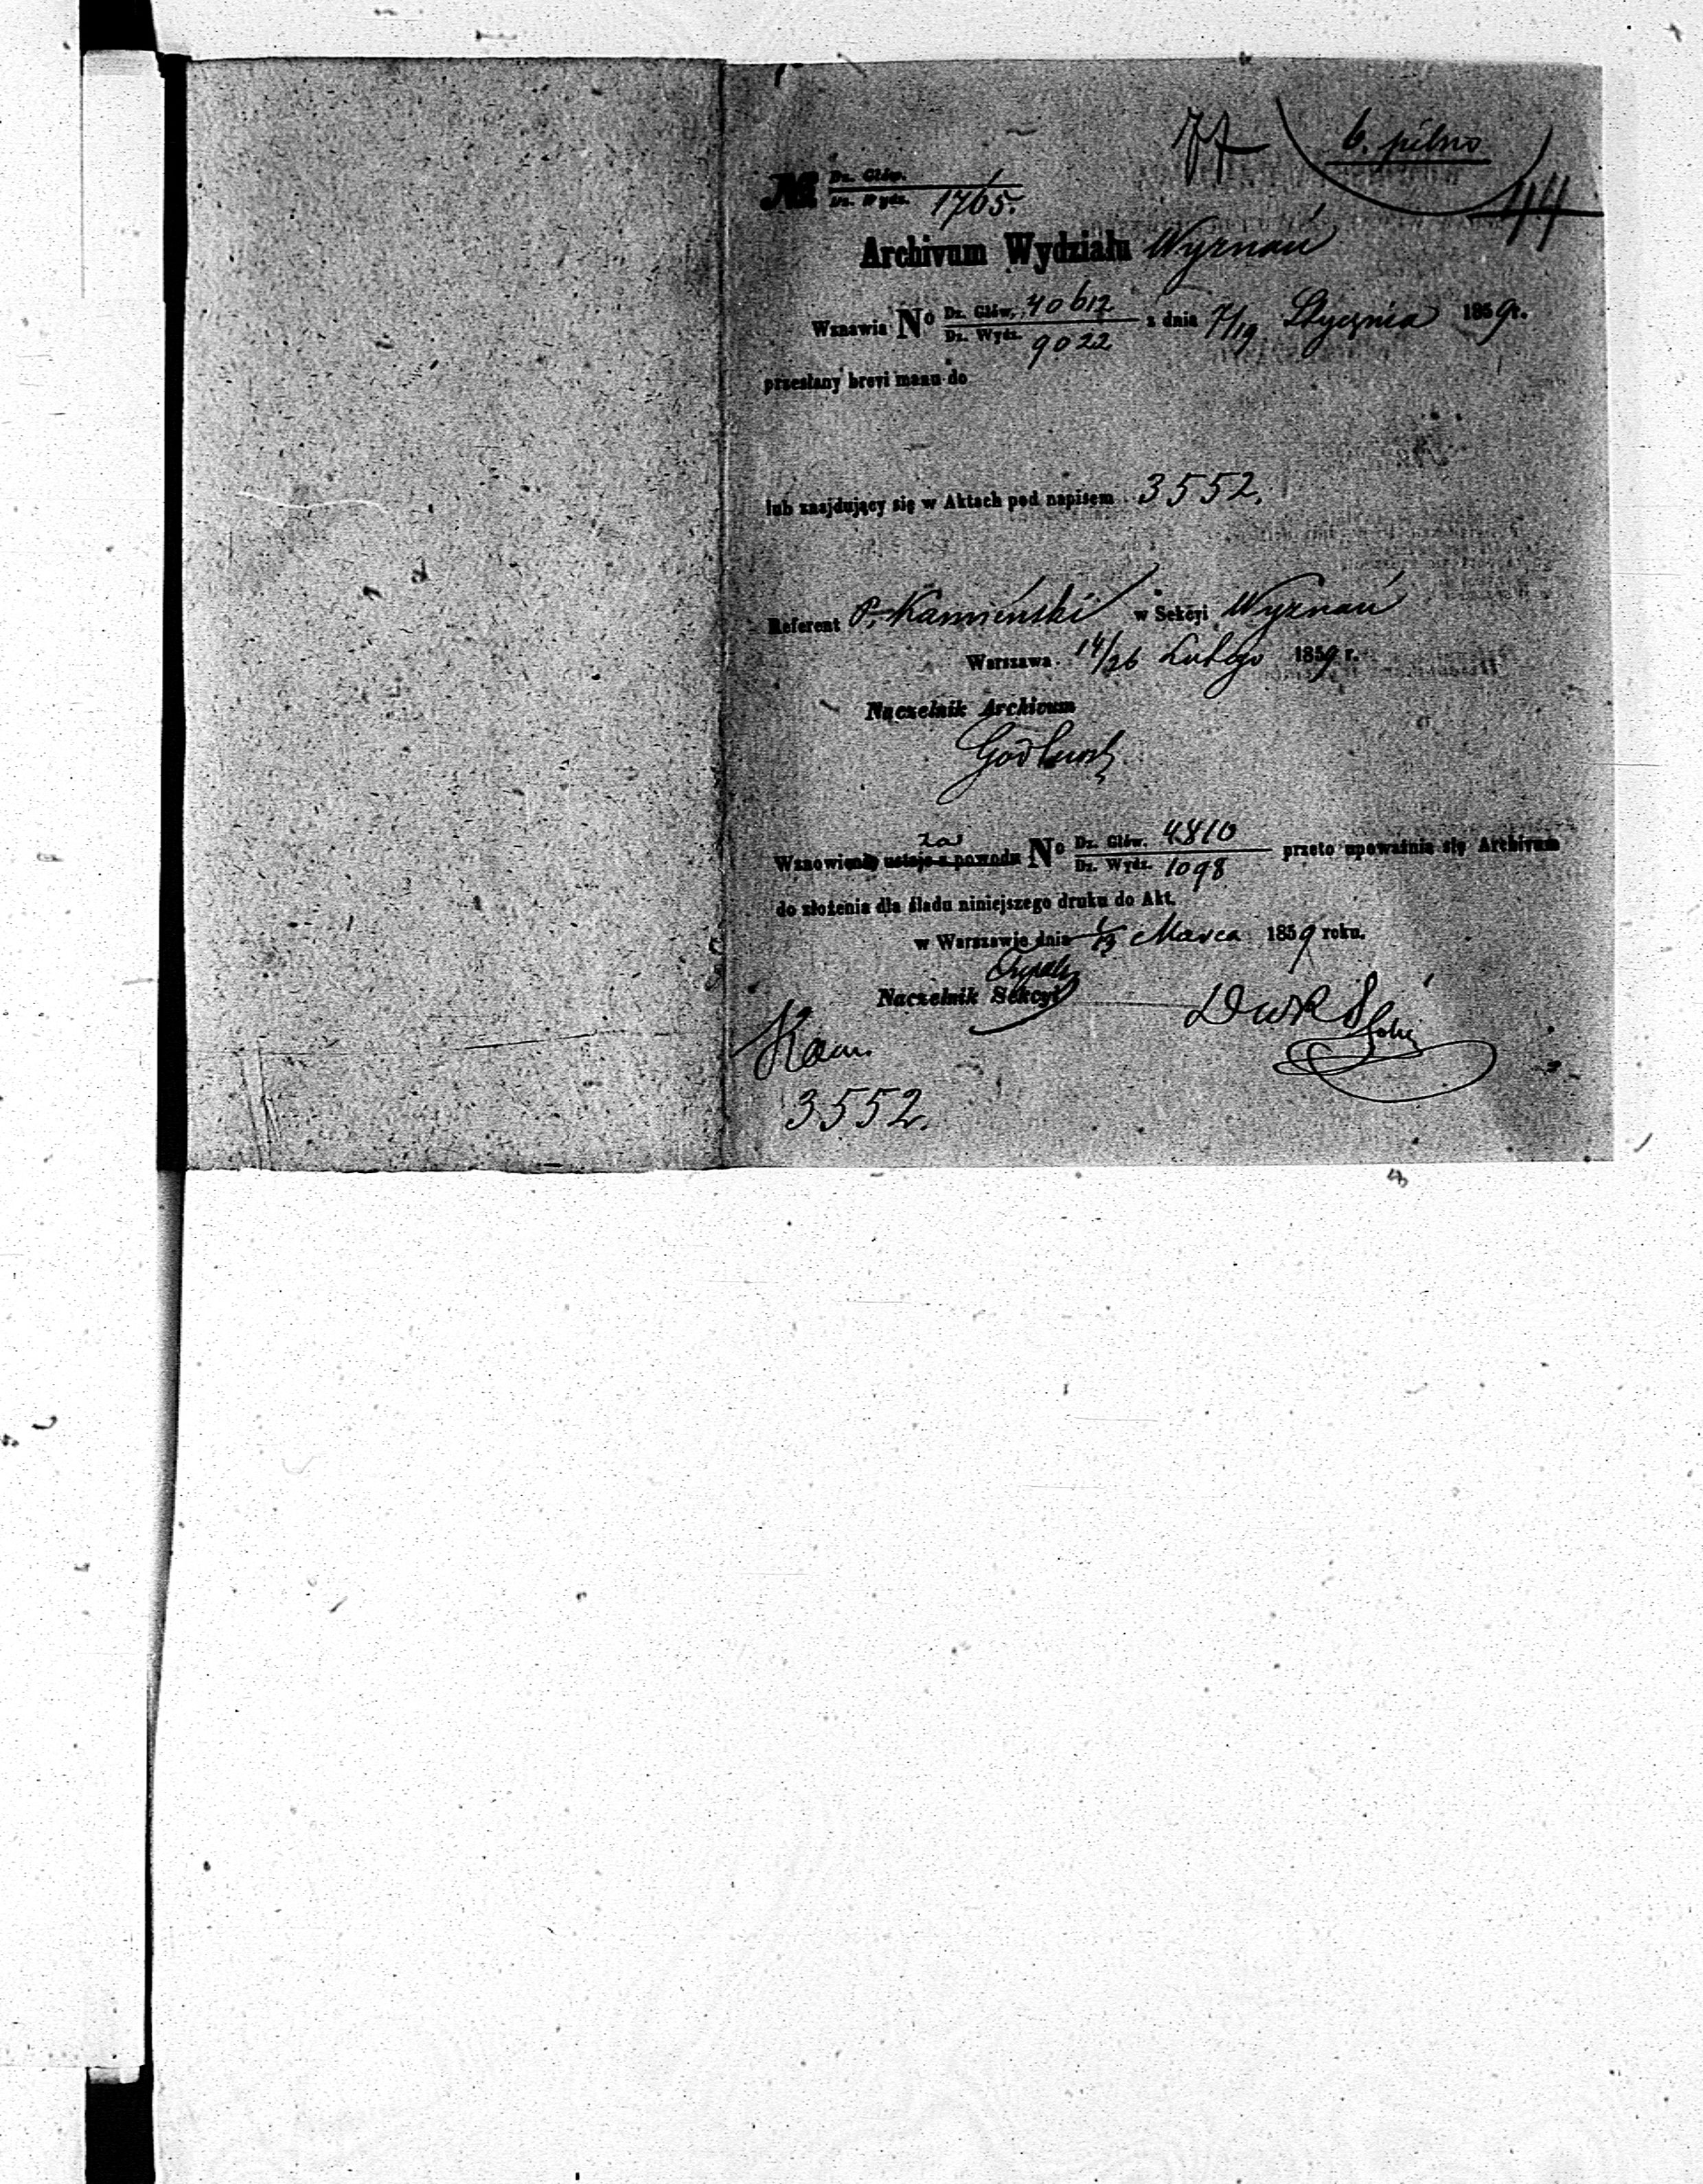 77 b. pilno
44
№ Dz. Głów.
Dz. Wydz. 1765.
Archivum Wydziału Wyznań
Wznawia No Dz. Głów. 40612 z dnia 7/19 Stycznia 1859 r.
Dz. Wydz. 9022
przesłany brevi manu do
lub znajdujący się w Aktach pod napisem 3552.
Referent P. Kamiński w Sekcyi Wyznań
Warszawa 14/26 Lutego 1859 r.
Naczelnik Archivum
zaś
Wznowienie ustaje z powodu No Dz. Głów. 4810 przeto upoważnia się Archivum
Dz. Wydz. 1098
do złożenia dla śladu niniejszego druku do Akt.
w Warszawie dnia Marca 1859 roku.
Naczelnik Sekcyi
Kam.
3552.